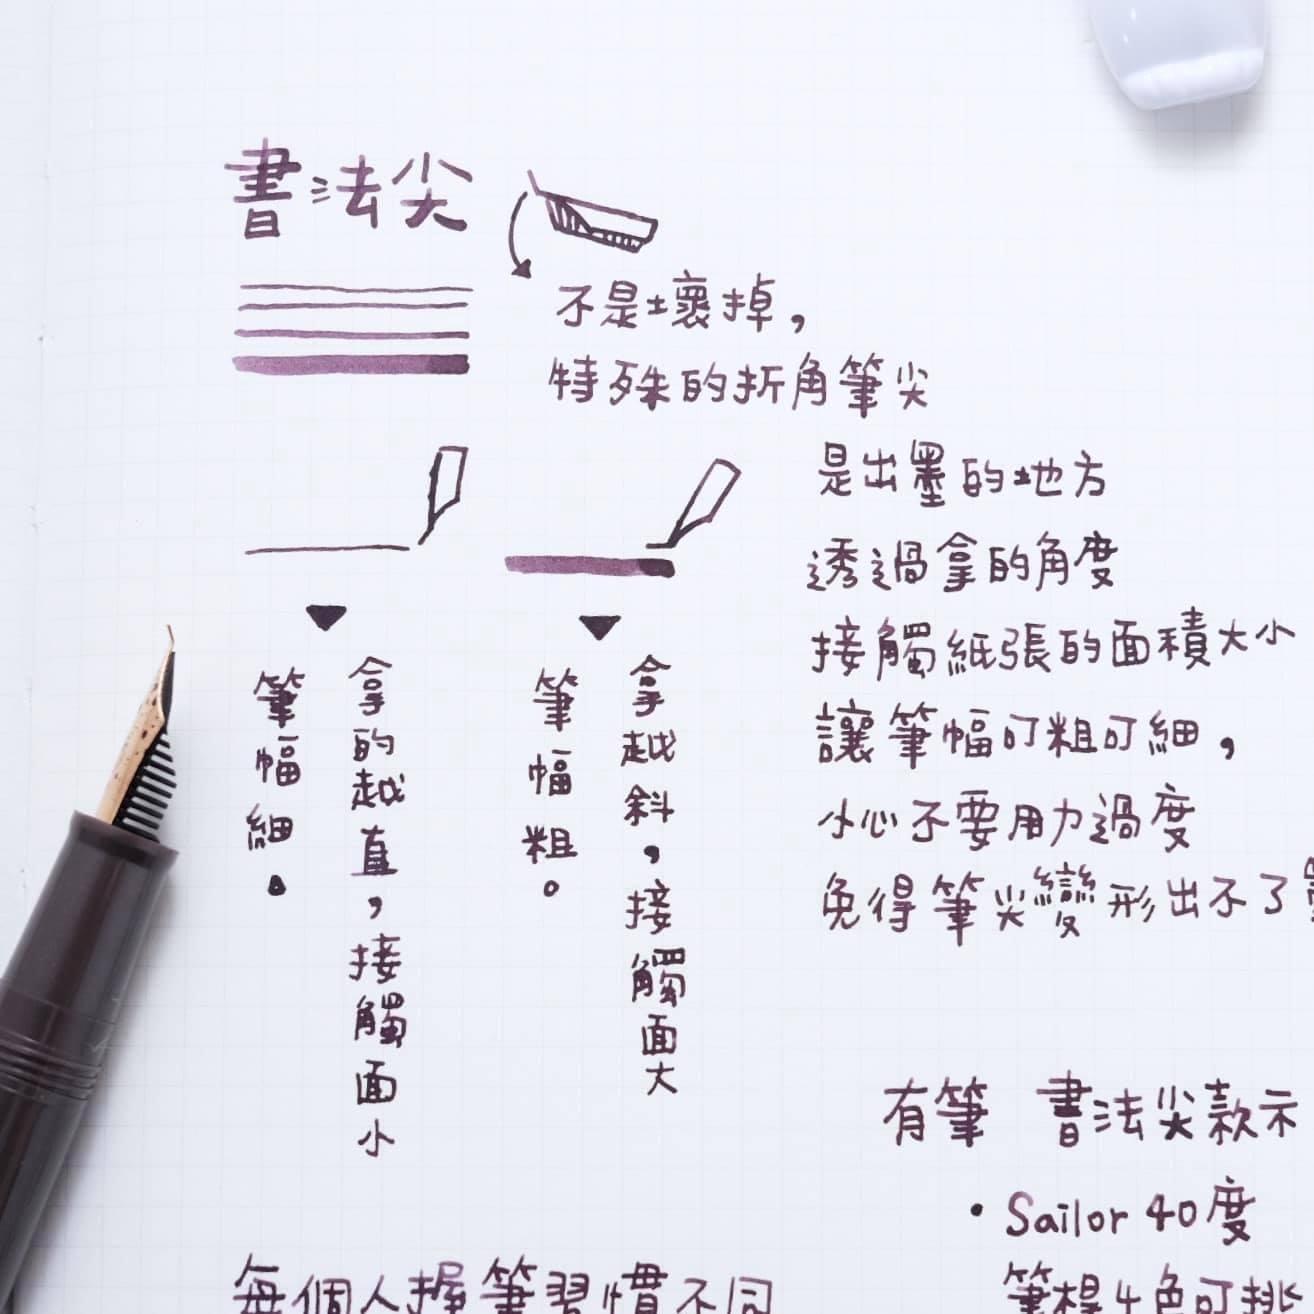 書法尖
不是壞掉，
特殊的折角筆尖
是出墨的地方
透過拿的角度
接觸紙張的面積大小
讓筆幅可粗可細，
小心不要用力過度
免得筆尖變形出不了
拿的越直，接觸面小
筆幅細。
拿越斜，接觸面大
筆幅粗。
有筆 書法尖款示
• Sailor 40度
筆桿4色可挑
每個人握筆習慣不同